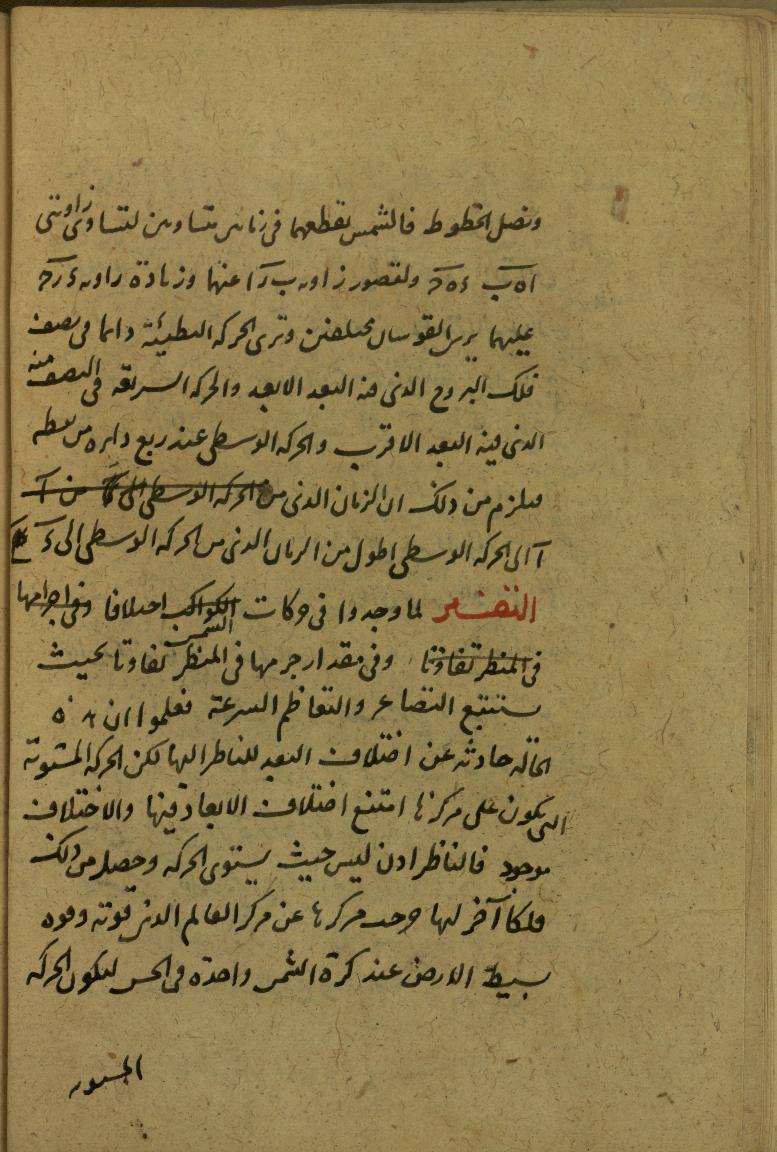 ونصل الخطوط فالشمس تقطعهما في زمانين متساويين لتساوي زاويتي
اه‍ب ء‍ه‍ح ولقصور زاويه ب ر ا عنها وزيادة زاويه ء ر ح
عليهما يرى القوسان مختلفين وترى الحركه البطيئة دائما في نصف
فلك البروج الذي فيه البعد الابعد والحركه السريعه في النصف منه
الذي فيه البعد الاقرب والحركه الوسطى عند ربع دايره من نقطه
فيلزم من ذلك ان الزمان الذي من الحركه الوسطى الى من آ
آ الى الحركه الوسطى اطول من الزمان الذي من الحركه الوسطى الى ء
التفسير لما وجدوا في حركات الكواكب الشمس اختلافا وفي اجرامها
في المنظر تفاوتا وفي مقدار جرمها في المنظر تفاوتا بحيث
يستتبع التصاغر والتعاظم السرعة فعلموا ان هذه
الحالة حادثه عن اختلاف البعد للناظر اليها لكن الحركه المستوية
التي تكون على مركزها امتنع اختلاف الابعاد فيها والاختلاف
موجود فالناظر اذن ليس حيث يستوي الحركه وحصل من ذلك
فلكا آخر لها خرجت مركزها عن مركز العالم الذي قوته وقوه
بسيط الارض عند كرة الشمس واحدة في الحس لتكون الحركه
المستويه